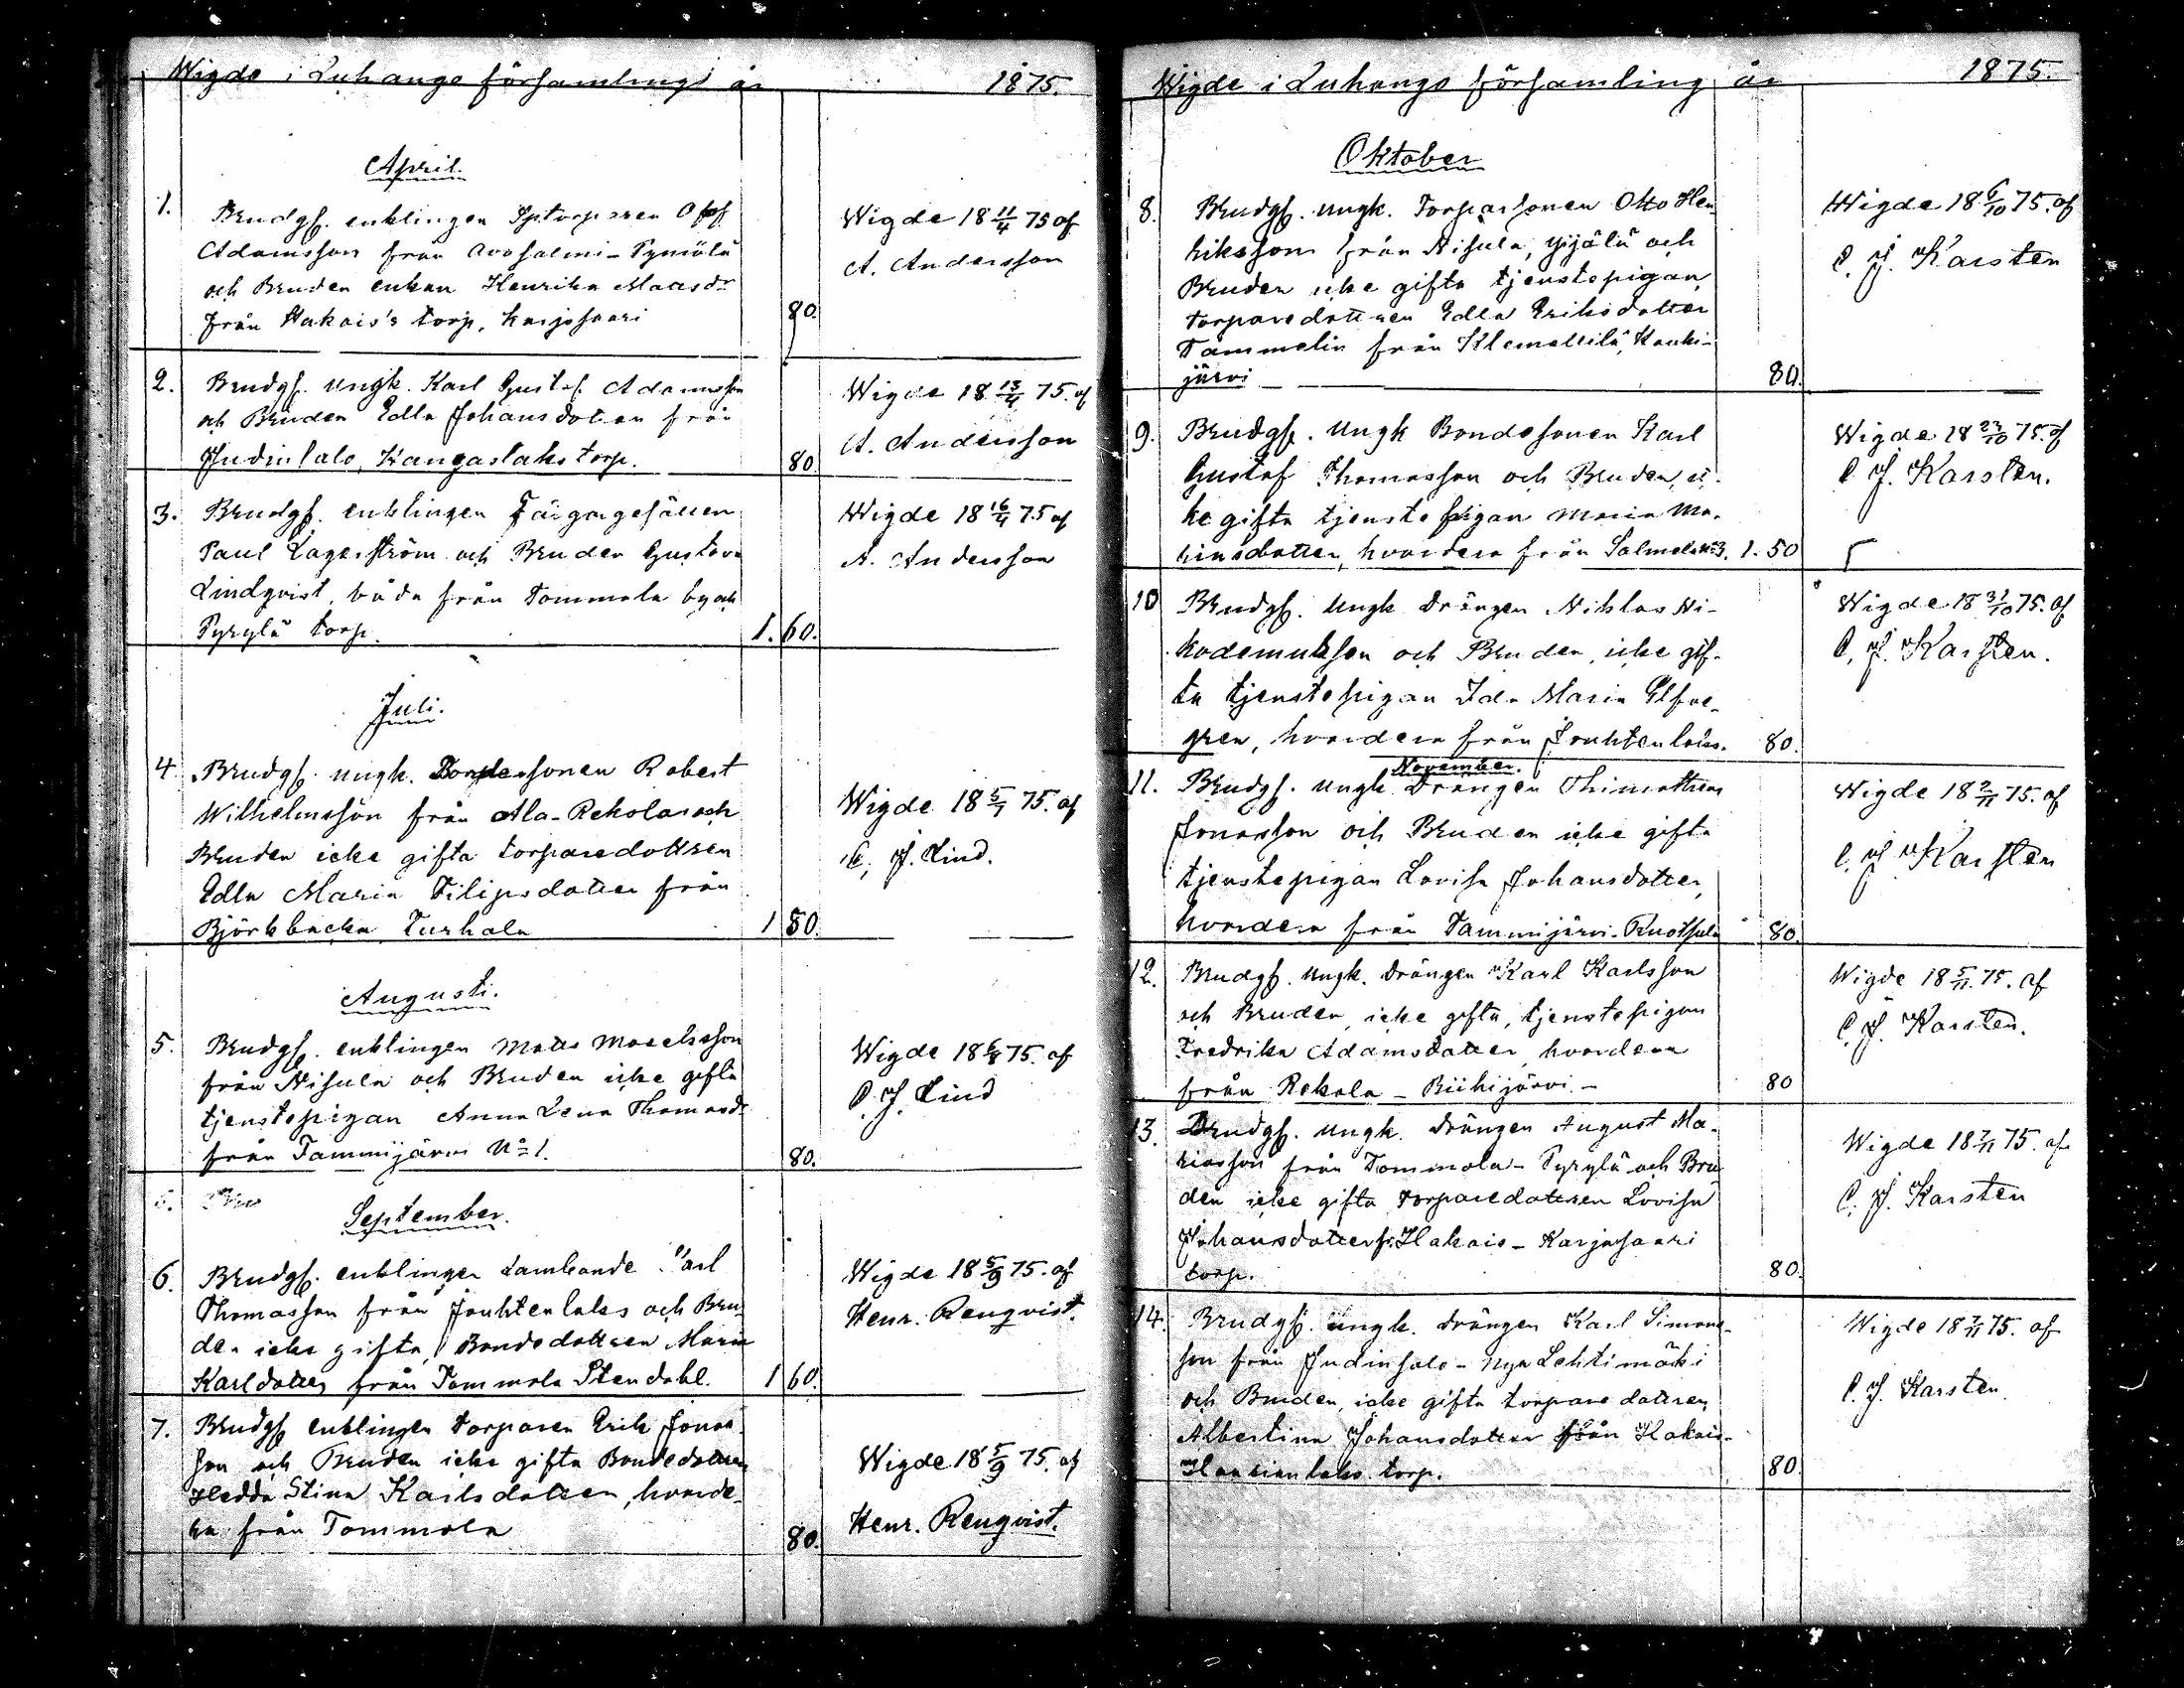 Wigde i Luhango församlings år 1875.
April.
1. Brudg. enklingen Sptorparen Olof
Adamsson från Avosalmi - Pynnölä
och Bruden enkan Henrika Mattsdr
från Hakais's torp, karjosaari 80.
Wigde 18 11/4 75 af
A. Andersson
2. Brudg. ungk. Karl Gustaf Adamsson
och Bruden Edla Johansdotter från
Judinsalo, Kangaslaks torp. 80.
Wigde 18 13/4 75. af
A. Andersson
3. Brudg. enklingen Färgargesällen
Paul Lagerström och Bruden Gustava
Lindqvist, båda från Tommola by och
Pyrylä torp. 1. 60.
Wigde 18 16/4 75 af
A. Andersson
Juli.
4. Brudg. ungk. Bondesonen Robert
Wilhelmsson från Ala-Rekola och
Bruden icke gifta torparedottren
Edla Maria Filipsdotter från
Björkbacka Turhala 1 50.
Wigde 18 5/7 75. af
C. J. Lind.
Augusti.
5. Brudg. enklingen Matts Maselsson
från Nisula och Bruden icke gifta
tjenstepigan Anna Lena Thomasdr
från Tammijärvi No 1. 80.
Wigde 18 6/8 75. af
C. J. Lind
September.
6. Brudg. enklingen Landbonde Karl
Thomasson från Jouhtenlaks och Bru-
den icke gifta, Bondedottren Maria
Karldotter från Tommola Stendahl. 1 60.
Wigde 18 5/9 75. af
Henr. Renqvist.
7. Brudg. enklingen torparen Erik Jonas-
son och Bruden icke gifta Bondedottren
Hedda Stina Karlsdotter, hvarde-
ra från Tommola 80.
Wigde 18 5/9 75. af
Henr. Renqvist.
Wigde i Luhango församling år 1875.
Oktober
8. Brudg. ungk. Torparsonen Otto Hen-
riksson från Nisula, Yijälä och
Bruden icke gifta tjenstepigan,
torparedottren Edla Eriksdotter
Tammelin från Klemettilä, Kauhi-
järvi 80.
Wigde 18 6/10 75. af
C. J. Karsten
9. Brudg. Ungk Bondesonen Karl
Gustaf Thomasson och Bruden, ic-
ke gifta tjenstepigan Maria Ma-
kinsdotter, hvardera från Salmela No 3. 1. 50
Wigde 18 23/10 75. af
C. J. Karsten.
10 Brudg. Ungk drängen Niklas Ni-
kodemusson och Bruden, icke gif-
ta tjenstepigan Ida Maria Elfve-
gren, hvardera från Jouhtenlaks. 80.
Wigde 18 31/10 75. af
C. J. Karsten.
November.
11. Brudg. Ungk Drängen Thimotheus
Jonasson och Bruden icke gifta
tjenstepigan Lovisa Johansdotter,
hvardera från Tammijärvi-Ruotsula 80.
Wigde 18 2/11 75. af
C. J. Karsten
12. Brudg. Ungk. drängen Karl Karlsson
och Bruden, icke gifta, tjenstepigan
Fredrika Adamsdotter hvardera
från Rekola - Riihijärvi - 80
Wigde 18 5/11 75. af
C. J. Karsten.
13. Brudg. Ungk. drängen August Ma-
kiasson från Tommola - Pyrylä och Bru-
den icke gifta torparedottren Lovisa
Johansdotter fr. Hakais - Karjosaari
torp. 80.
Wigde 18 7/11 75. af
C. J. Karsten
14. Brudg. Ungk. drängen Karl Simons-
son från Judinsalo - Nya Lehtimäki
och Bruden, icke gifta torparedottren
Albertina Johansdotter från Hakais-
torp. 80.
Wigde 18 7/11 75. af
C. J. Karsten.